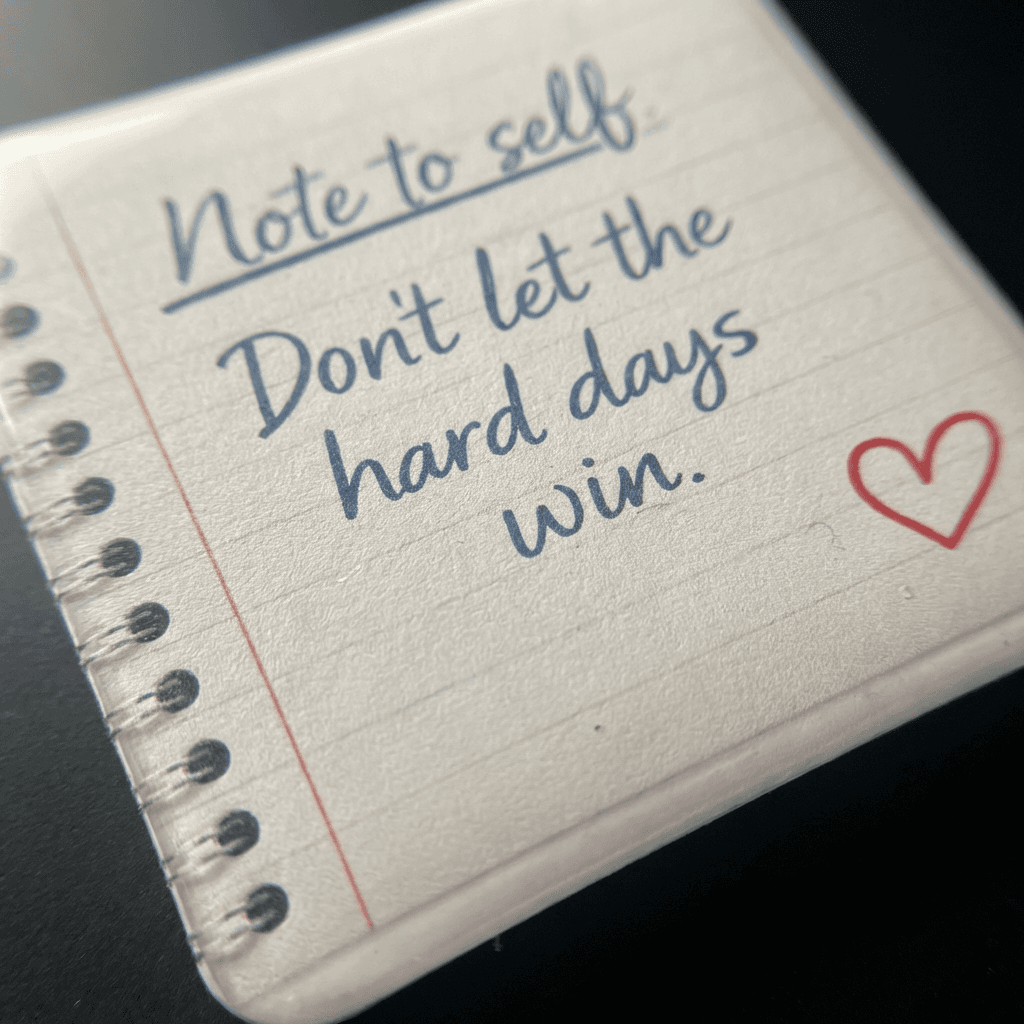 Note to self.
Don't let the
hard days
win.